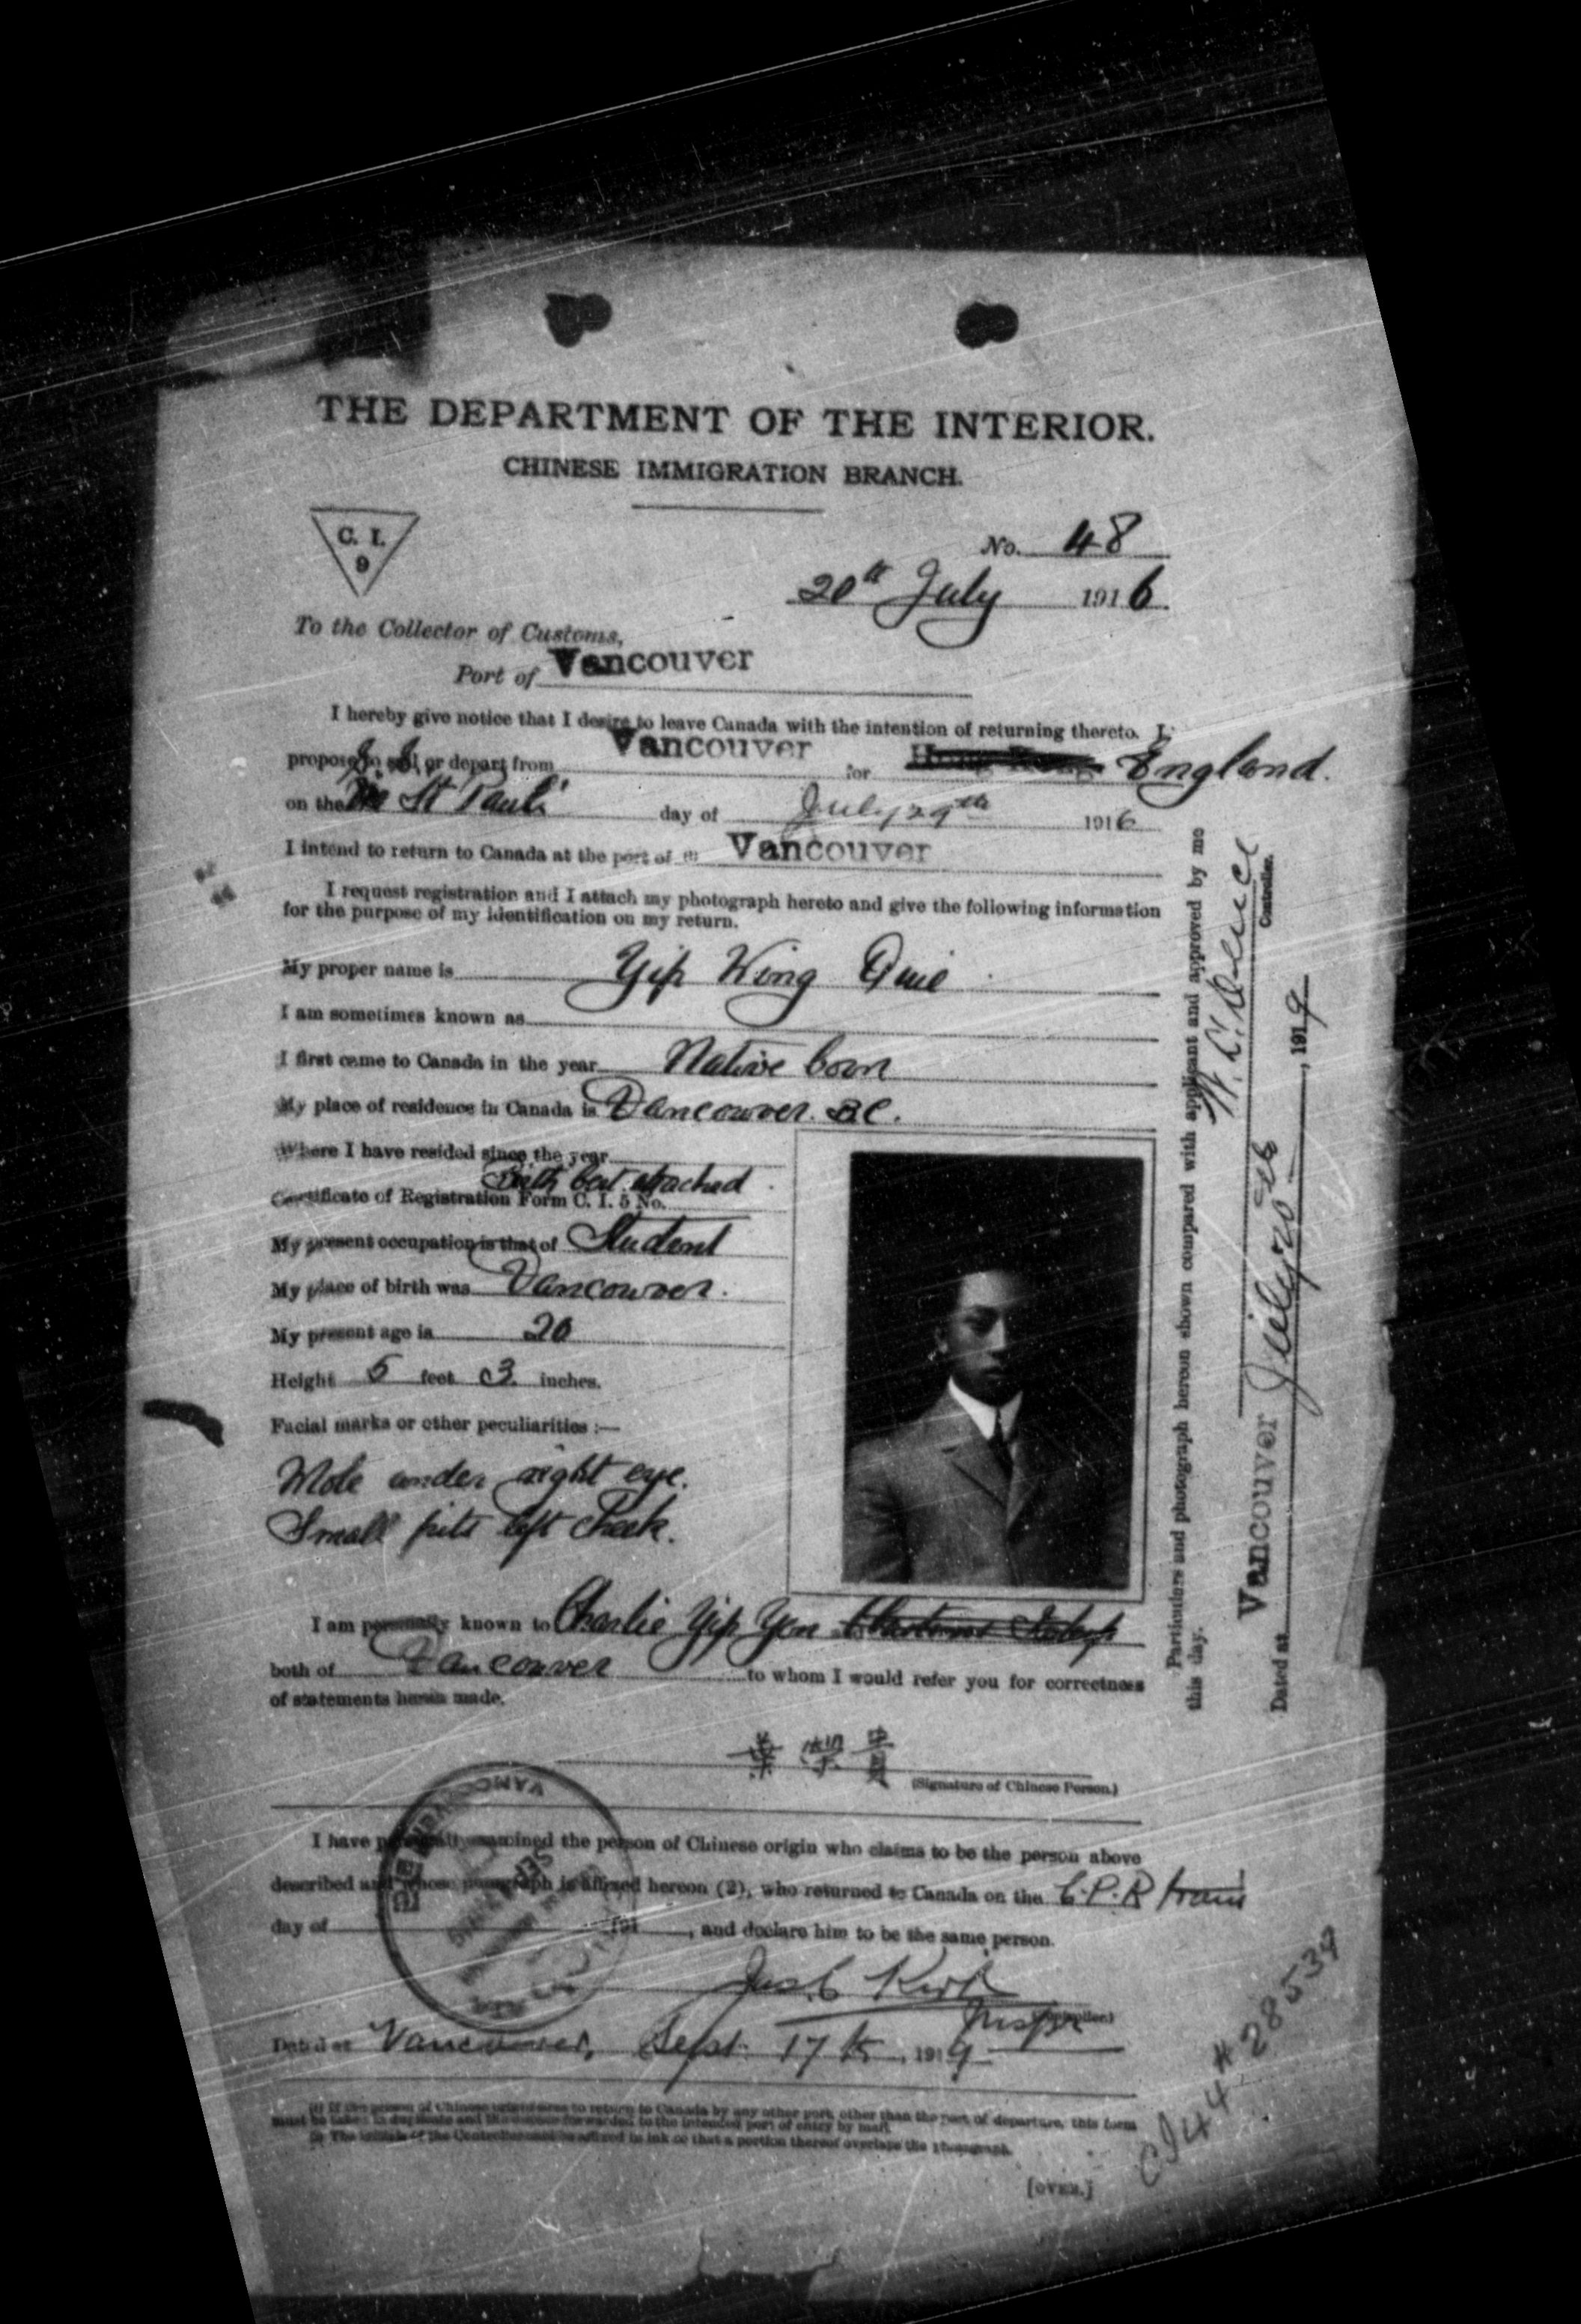 THE DEPARTMENT OF THE INTERIOR.
CHINESE IMMIGRATION BRANCH.
C. I.
9
No. 48
20th July 1916.
To the Collector of Customs,
Port of Vancouver
I hereby give notice that I desire to leave Canada with the intention of returning thereto. I
propose to sail or depart from Vancouver for Hong Kong England.
on the St Paul day of July 29th 1916
I intend to return to Canada at the port of (1) Vancouver
I request registration and I attach my photograph hereto and give the following information
for the purpose of my identification on my return.
My proper name is Yip Wing Quie
I am sometimes known as
I first came to Canada in the year Native born
My place of residence in Canada is Vancouver. BC.
Where I have resided since the year
Birth Cert attached.
Certificate of Registration Form C. I. 5 No.
My present occupation is that of Student
My place of birth was Vancouver.
My present age is 20
Height 5 feet 3 inches.
Facial marks or other peculiarities :—
Mole under right eye.
Small pits left cheek.
I am personally known to Charlie Yip Yen
both of Vancouver to whom I would refer you for correctness
of statements herein made.
葉榮貴
(Signature of Chinese Person.)
I have personally examined the person of Chinese origin who claims to be the person above
described and whose photograph is affixed hereon (2), who returned to Canada on the C.P.R train
day of 191 , and declare him to be the same person.
Jas. C Kirk
Inspr
Dated at Vancouver, Sept. 17th, 1919
(1) If the person of Chinese origin desires to return to Canada by any other port, other than the port of departure, this form
must be taken in duplicate and the second forwarded to the intended port of entry by mail.
(2) The initials of the Controller must be affixed in ink so that a portion thereof overlaps the photograph.
[OVER.]
CI44 # 28539
Particulars and photograph hereon shown compared with applicant and approved by me
this day.
Controller.
Dated at Vancouver July 20th, 1919
VANCOUVER
SEP